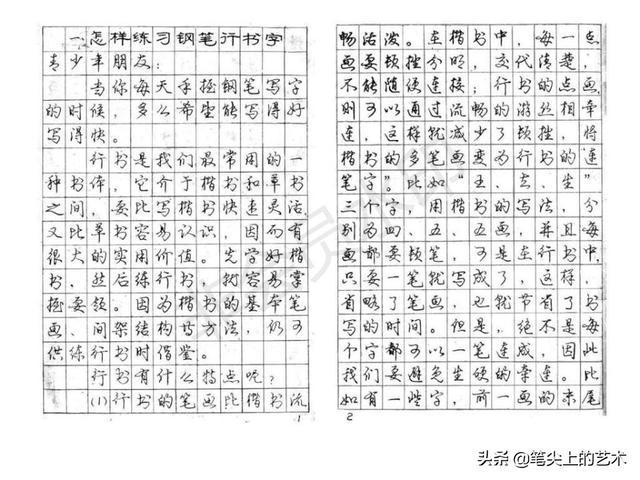 一、怎样练习钢笔行书字
青少年朋友：
当你每天手握钢笔写字
的时候，多么希望能写得好
写得快。
行书是我们最常用的一
种书体，它介于楷书和草书
之间，要比写楷书快速灵活，
又比草书容易认识，因而有
很大的实用价值。先学好楷
书，然后练行书，就容易掌
握要领。因为楷书的基本笔
画、间架结构等方法，仍可
供练行书时借鉴。
行书有什么特点呢？
(1)行书的笔画比楷书流
1
畅活泼。在楷书中，每一点
画要顿挫分明，交代清楚，
不能随便连接；行书的点画
则可以通过流畅的游丝相牵
连，这样就减少了顿挫，将
楷书的多笔画变为行书的“连
笔字”。比如“王、去、生”
三个字，用楷书的写法，分
别为四、五、五画，并且每
画都要顿笔，可是在行书中，
只要一笔就写成了，这样，
省略了笔画，也就节省了书
写的时间。但是，绝不是每
个字都可以一笔连成，因此
我们要避免生硬的牵连。比
如有一些字，前一画的末尾
2
头条 @笔尖上的艺术